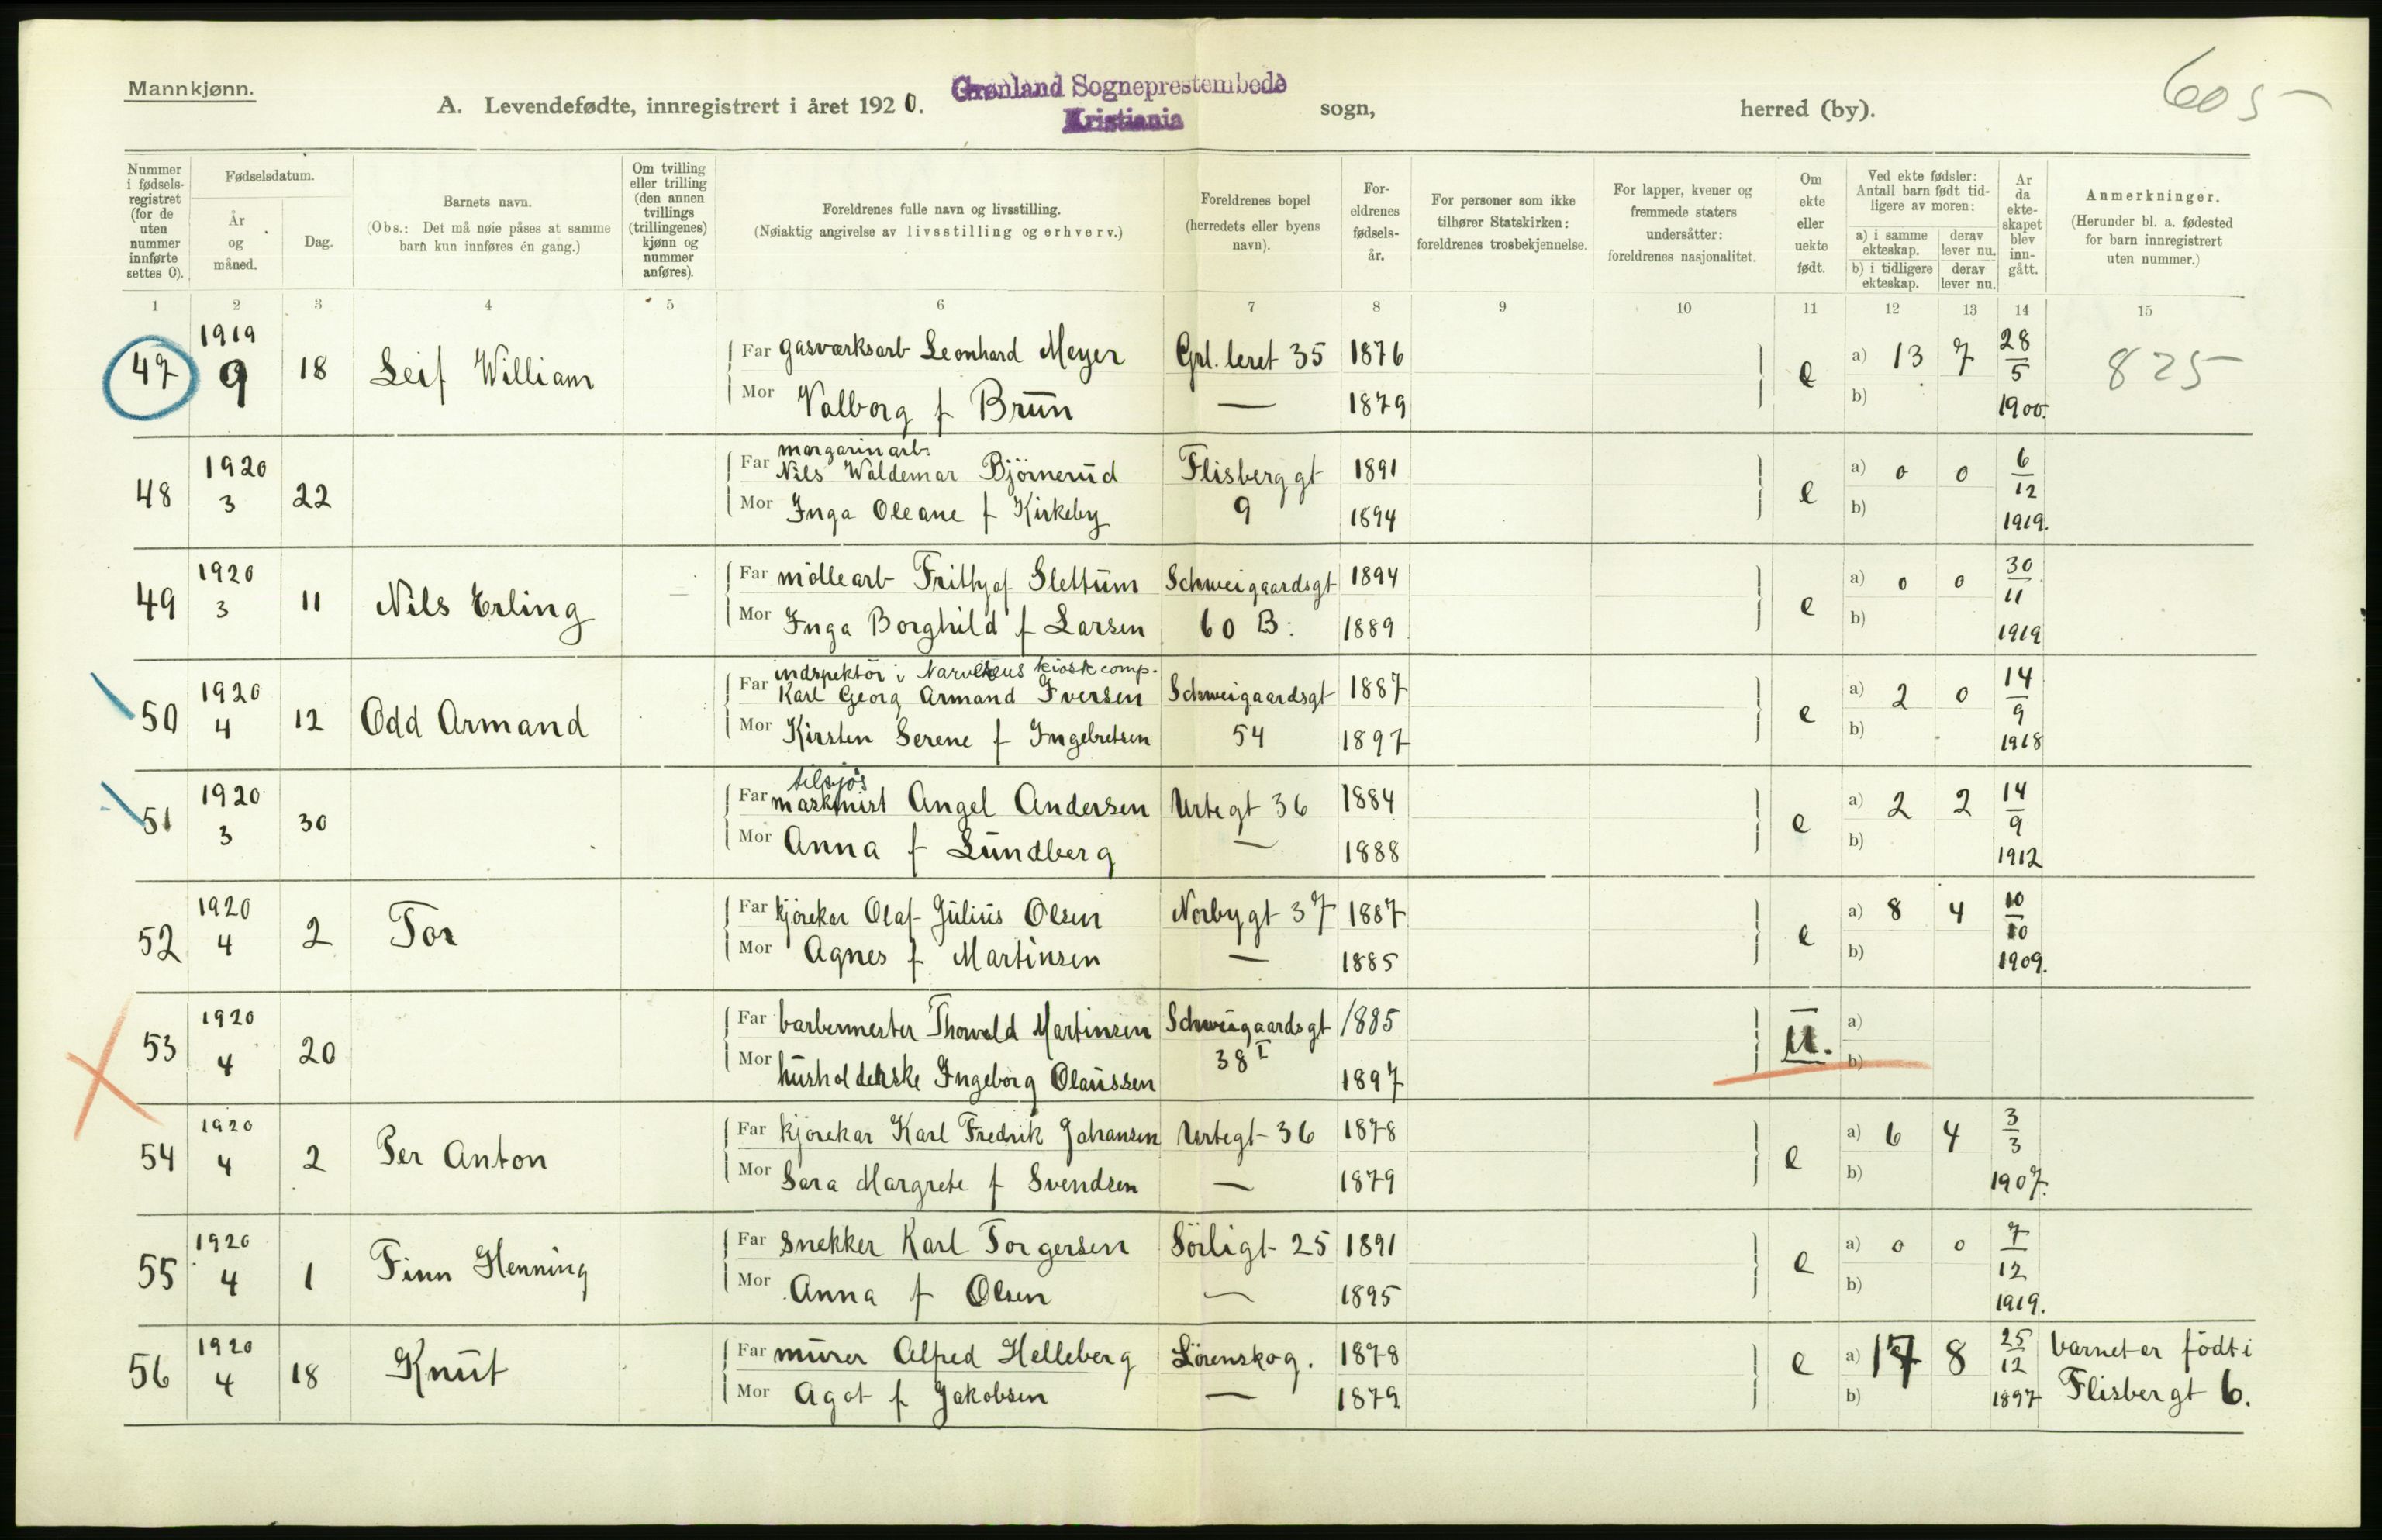 Mannkjønn.
A. Levendefødte, innregistrert i året 1920.
Grønland Sogneprestembede
Kristiania
sogn,
herred (by).
605
Nummer i fødselsregistret (for de uten nummer innførte settes 0).
Fødselsdatum.
År og måned.
Dag.
Barnets navn.
(Obs.: Det må nøie påses at samme barn kun innføres én gang.)
Om tvilling eller trilling (den annen tvillings (trillingenes) kjønn og nummer anføres).
Foreldrenes fulle navn og livsstilling.
(Nøiaktig angivelse av livsstilling og erhverv.)
Foreldrenes bopel
(herredets eller byens navn).
Foreldrenes fødselsår.
For personer som ikke tilhører Statskirken: foreldrenes trosbekjennelse.
For lapper, kvener og fremmede staters undersåtter: foreldrenes nasjonalitet.
Om ekte eller uekte født.
Ved ekte fødsler: Antall barn født tidligere av moren:
a) i samme ekteskap.
derav lever nu.
b) i tidligere ekteskap.
derav lever nu.
Ar da ekteskapet blev inngått.
Anmerkninger.
(Herunder bl. a. fødested for barn innregistrert uten nummer.)
1 2 3 4 5 6 7 8 9 10 11 12 13 14 15
47 1919 9 18 Leif William
Far gasværksarb Leonhard Meyer Grl. leret 35 1876
Mor Valborg f Brun — 1879
e a) 13 7 b) 28/5 1900. 825
48 1920 3 22
Far margarinarb. Nils Waldemar Björnerud Flisberggt 1891
Mor Inga Oleane f Kirkeby 9 1894
e a) 0 0 b) 6/12 1919.
49 1920 3 11 Nils Erling
Far möllearb Frithjof Slettum Schweigaardsgt 1894
Mor Inga Borghild f Larsen 60 B: 1889
e a) 0 0 b) 30/11 1919
50 1920 4 12 Odd Armand
Far indspektör i Narvesens kiosk comp. Karl Georg Armand Iversen Schweigaardsgt 1887
Mor Kirsten Serene f Ingebretsen 54 1897
e a) 2 0 b) 14/9 1918
51 1920 3 30
Far maskinist tilsjös Angel Andersen Urtegt 36 1884
Mor Anna f Lundberg — 1888
e a) 2 2 b) 14/9 1912
52 1920 4 2 Tor
Far kjörekar Olaf Julius Olsen Norbygt 37 1887
Mor Agnes f Martinsen — 1885
e a) 8 4 b) 10/10 1909.
53 1920 4 20
Far barbermester Thorvald Martinsen Schweigaardsgt 1885
Mor husholderske Ingeborg Olaussen 38 I 1897
u. a) b)
54 1920 4 2 Per Anton
Far kjörekar Karl Fredrik Johansen Urtegt 36 1878
Mor Sara Margrete f Svendsen — 1879
e a) 6 4 b) 3/3 1907.
55 1920 4 1 Finn Henning
Far snekker Karl Torgersen Sörligt 25 1891
Mor Anna f Olsen — 1895
e a) 0 0 b) 7/12 1919.
56 1920 4 18 Knut
Far murer Alfred Helleberg Lörenskog. 1878
Mor Agot f Jakobsen — 1879
e a) 8 b) 25/12 1897 barnet er födt i
Flisbergt 6.